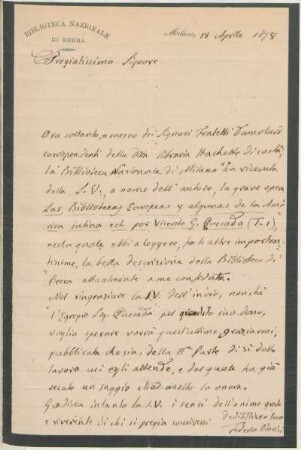 BIBLIOTECA NAZIONALE
DI BRERA
Milano 18 Aprile 1878
Pregiatissimo Signore
Ora soltanto, a mezzo dei Signori Fratelli Dumolard
corrispondenti della Ditta libraria Hachette di costà,
la Biblioteca Nazionale di Milano ha ricevuta
della S. V., a nome dell'autore, la grave opera
Las Bibliotecas Europeas y algunas de la Amé-
rica latina ect. por Vicente G. Quesada (T. 1),
nella quale ebbi a leggere, fra le altre importan-
tissime, la bella descrizione della Biblioteca di
Brera attualmente a me confidata.
Nel ringraziare la S.V. dell'invio, nonchè
l'Egregio Sig. Quesada pel gradito suo dono,
voglio sperare vorrà quest'ultimo graziarmi,
pubblicata che sia, della IIª Parte di sì dotto
lavoro cui egli attende, e del quale ha già
un saggio che molto lo onora.
Gradisca intanto la S.V. i sensi dell'animo grato
e riverente di chi si pregia